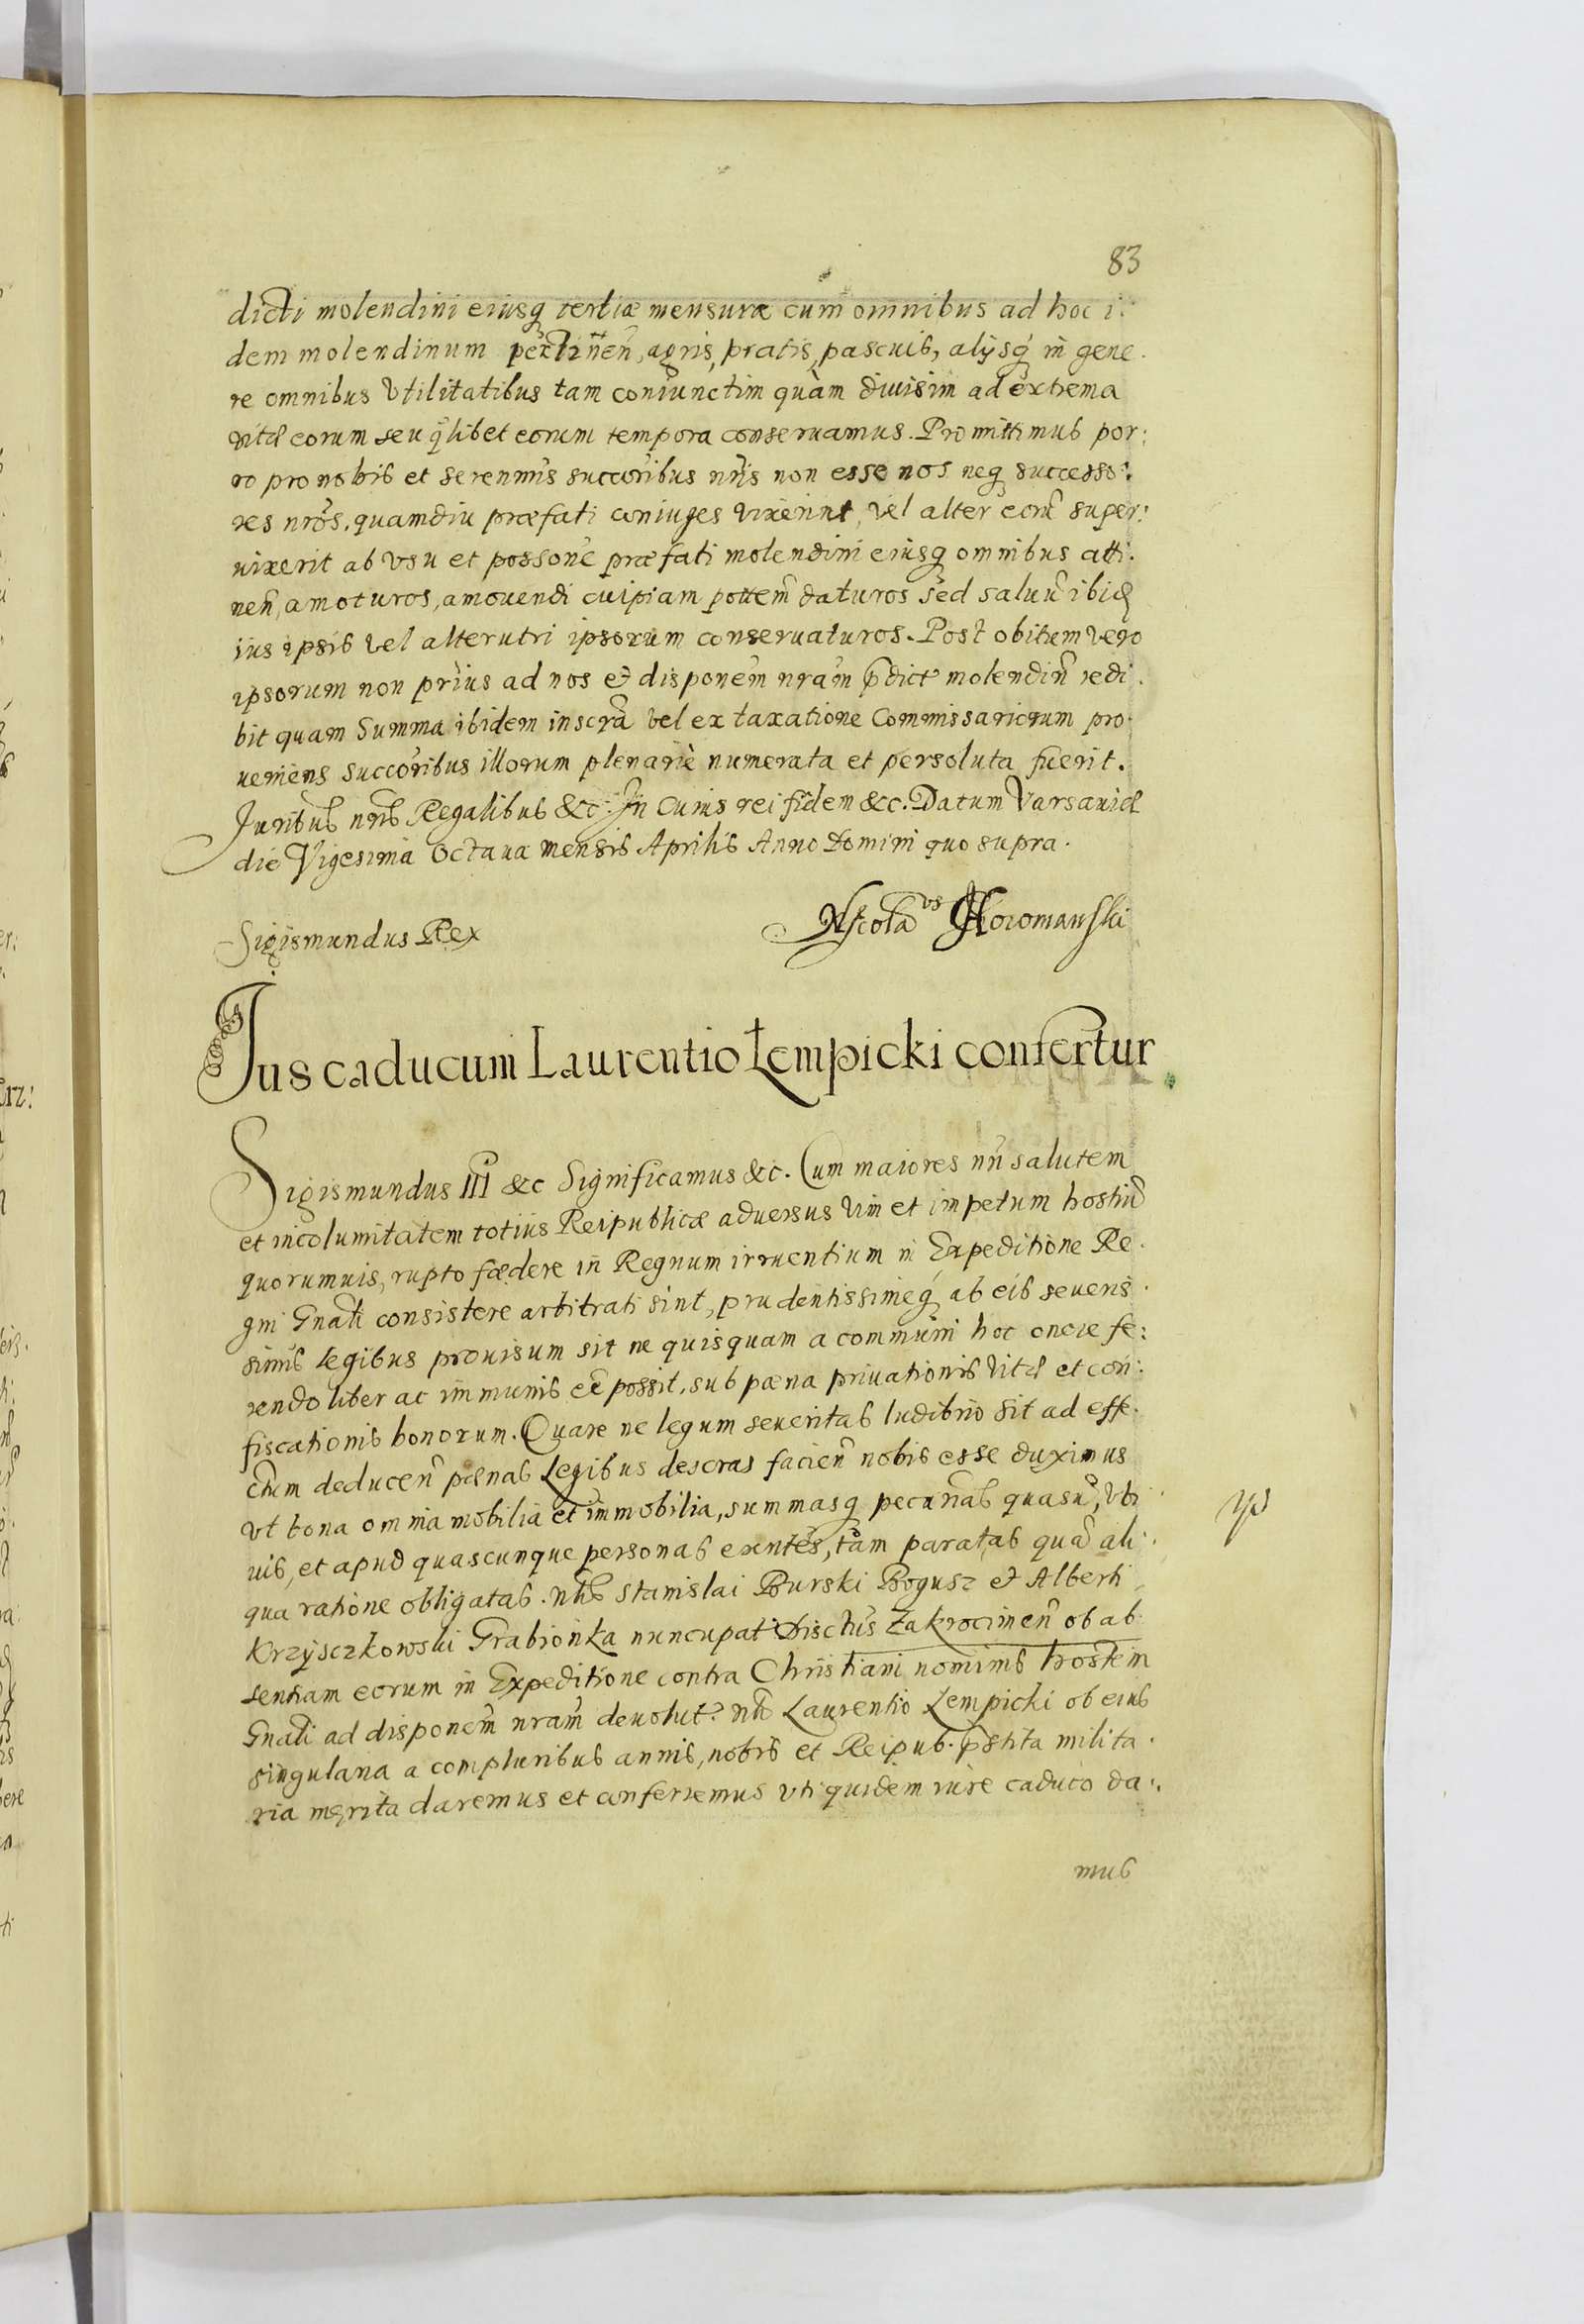 83
dicti molendini eiusq́ tertiæ mensuræ cum omnibus ad hoc i:
dem molendinum pertinen̄, agris, pratis, pascuis, alijsq́ in gene.
re omnibus vtilitatibus tam coniunctim quàm diuisim ad extrema
vitæ eorum seu q̃libet eorum tempora conseruamus. Promittimus por:
ro pro nobis et serenmis̃ succorĩbus nrĩs non esse nos neq́ successo:
res nrõs, quamdiu præfati coniuges vixerint, vel alter eorũ super:
uixerit ab vsu et possonẽ præfati molendini eiusq́ omnibus atti.
nen̄, amoturos, amouendi cuipiam pottem̃ daturos sed saluũ ibid̃
ius ipsis vel alterutri ipsorum conseruaturos. Post obitum vero
ipsorum non prius ad nos et disponem̃ nram̃ p̃dict molendin̄ redi.
bit quam Summa ibidem inscrã vel ex taxatione Commissariorum pro.
ueniens succorĩbus illorum plenariè numerata et persoluta fuerit.
Juribus nrĩs Regalibus &c. In Cuius rei fidem &c. Datum Varsauiæ
die Vigesima Octaua mensis Aprilis Anno Domini quo supra.
Sigismundus Rex
Nicolaus Choromanski
Jus caducum Laurentio Łempicki confertur
Sigismundus III &c Significamus &c. Cum maiores nrĩ salutem
et incolumitatem totius Reipublicæ aduersus vim et impetum hostiũ
quorumuis, rupto fœdere in Regnum irruentium in Expeditione Re.
gni Gnalĩ consistere arbitrati sint, prudentissimeq́ ab eis seueris.
simis legibus prouisum sit ne quisquam a communi hoc onere fe:
rendo liber ac immunis eẽ possit, sub pœna priuationis vitæ et con:
fiscationis bonorum. Quare ne legum seueritas ludibrio sit ad effe.
ctum deducen̄ pœnas Legibus descras̃ facien̄ nobis esse duximus
vt bona omnia mobilia et immobilia, summasq́ pecunãs quasuis, vbi
uis, et apud quascunque personas exntẽs, tam paratas quã ali:
qua ratione obligatas. nbl̃is Stanislai Burski Bogusz et Alberti
Krzysczkowski Grabionka nuncupat Disctũs Zakrocimen̄ ob ab
sentiam eorum in Expeditione contra Christiani nominis hostem
Gnalĩ ad disponem̃ nram̃ deuolut. nblĩ Laurentio Łempicki ob eius
singularia a compluribus annis, nobis et Reipub. p̃stita milita.
ria merita daremus et conferremus vti quidem iure caduco da:
mus